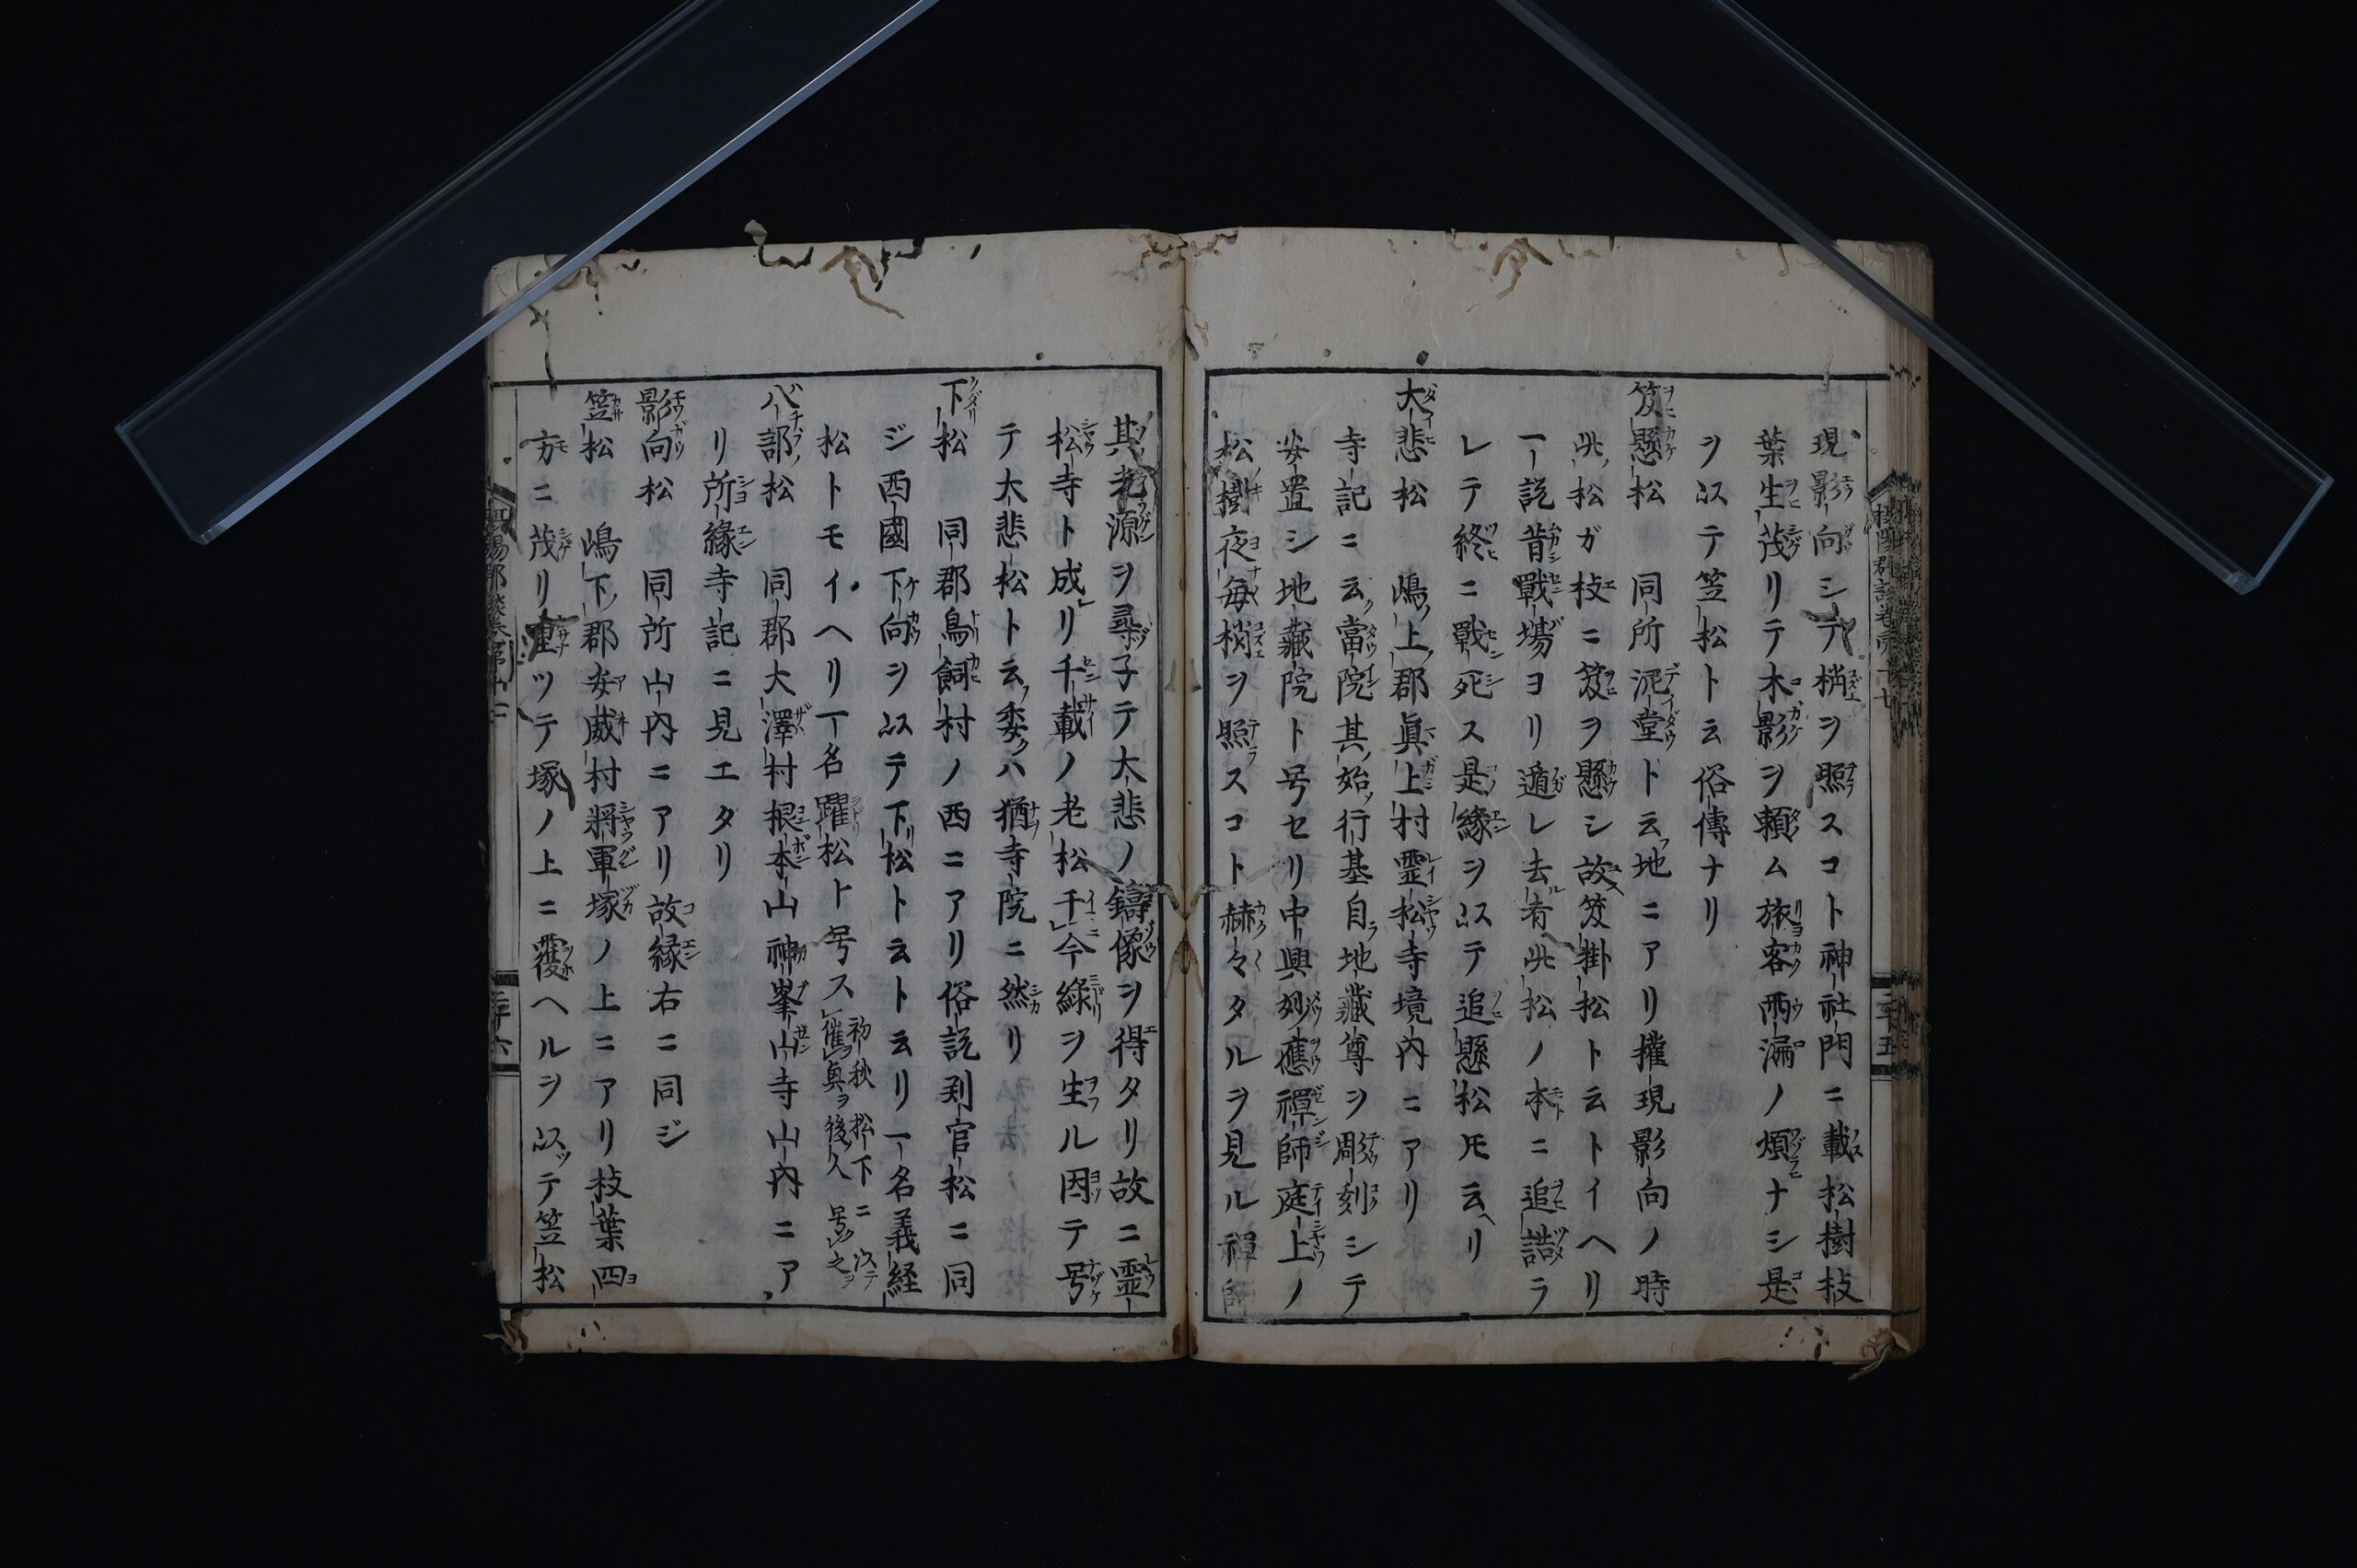 現影向シテ梢ヲ照スコト神社門ニ載松樹枝
葉生茂リテ木影ヲ頼ム旅客雨漏ノ煩ナシ是
ヲ以テ笠松ト云俗傳ナリ
笈懸松 同所泥堂ト云地ニアリ權現影向ノ時
此松ガ枝ニ笈ヲ懸シ故笈掛松ト云トイヘリ
一説昔戰場ヨリ遁レ去者此松ノ本ニ追詰ラ
レテ終ニ戰死ス是縁ヲ以テ追懸松トモ云ヘリ
大悲松 嶋上郡眞上村靈松寺境内ニアリ
寺記ニ云當院其始行基自地藏尊ヲ彫刻シテ
安置シ地藏院ト号セリ中興妙應禪師庭上ノ
松樹夜毎梢ヲ照スコト赫々タルヲ見ル禪師
其光源ヲ尋子テ大悲ノ鑄像ヲ得タリ故ニ靈
松寺ト成リ千載ノ老松于今綠ヲ生ル因テ号
テ大悲松ト云委ハ猶寺院ニ然リ
下松 同郡鳥飼村ノ西ニアリ俗説判官松ニ同
ジ西國下向ヲ以テ下リ松ト云ト云リ一名義経
松トモイヘリ一名躍松ト号ス初秋松下ニ催真ヲ後久以テ号之ヲ
八部松 同郡大澤村根本山神峯山寺山内ニア
リ所縁寺記ニ見エタリ
影向松 同所山内ニアリ故縁右ニ同ジ
笠松 嶋下郡安威村將軍塚ノ上ニアリ枝葉四
方ニ茂リ重ツテ塚ノ上ニ覆ヘルヲ以ッテ笠松